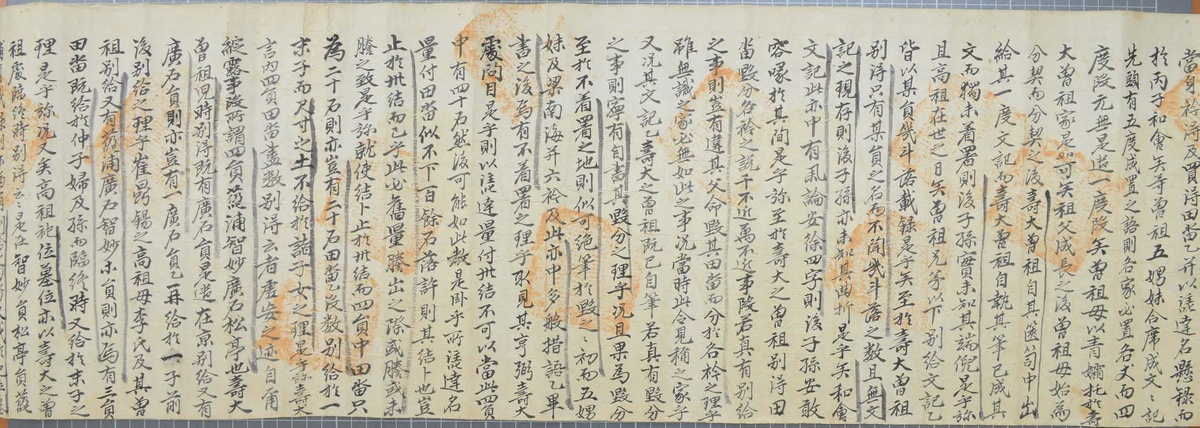 於丙子和會矣等曾祖五娚妹合席成文之記
先頭有五度成置之語則各家必置名文而四
度段元無是遣一度段矣曾祖母以青孀托於壽
大曾祖家是如可矣祖父成長之後曾祖母始爲
分契而分契之後壽大曾祖自其篋笥中出
給其一度文記而壽大曾祖自執其筆已成其
文而獨未着署則後子孫實未知其端倪是乎弥
且高祖在世之日矣曾祖兄等以下別給文記乙
皆以某員幾斗落載錄是乎矣至於壽大曾祖
別得只有某員之名而不開幾斗落之數且無文
記之現存則後子孫亦未知其曲折是乎矣和會
文記此亦中有乱論安徐四字則後子孫安敢
容喙於其間是乎弥至於壽大之曾祖別得田
當段分各衿之說千不近萬不近事段若真有別給
之事則豈有違其父命毁其田畓而分於各衿之理乎
雖無識之家必無如此之事况當時此合見稱之家乎
又况其文記乙壽大之曾祖既已自筆若真有毁分
之事則寧有自書其毁分之理乎况且果爲毁分
至於不着署之地則似可絶筆於毁之之初而五娚
妹及梁南海并六衿及此亦中多般措語乙畢
書之後焉有不着署之理乎取見其亨弼壽大
處問目是乎則以法違量付卅結不可以當此四員
中有四十石然後可能如此數是卧乎所法違名
量付田畓似不下百餘石落許則其結卜也豈
止於卅結而已乎此必舊量謄出之際或謄或未
謄之致是乎弥就使結卜止於卅結而四員中田畓只
爲二十石則亦豈有二十石田畓乙沒數別給於一
末子而尺寸之土不給於諸子女之理是乎弥壽大
言內四員田畓盡數別得云者虛妄之迹自甫
綻露事段所謂四員葛浦智妙廣石松亭也壽大
曾祖兒時別得既有廣石員是遣在京別給又有
廣石員則亦豈有一廣石員乙再給於一子前
後別給之理乎崔昌錫之高祖母李氏及其曾
祖別給又有葛浦廣石智妙等員則亦焉有三員
田當既給於仲子婦及孫而臨終時又給於末子之
理是乎弥况又矣高祖神位墓位亦以壽大之曾
祖處臨終時別得云云是在智妙員松亭員葛